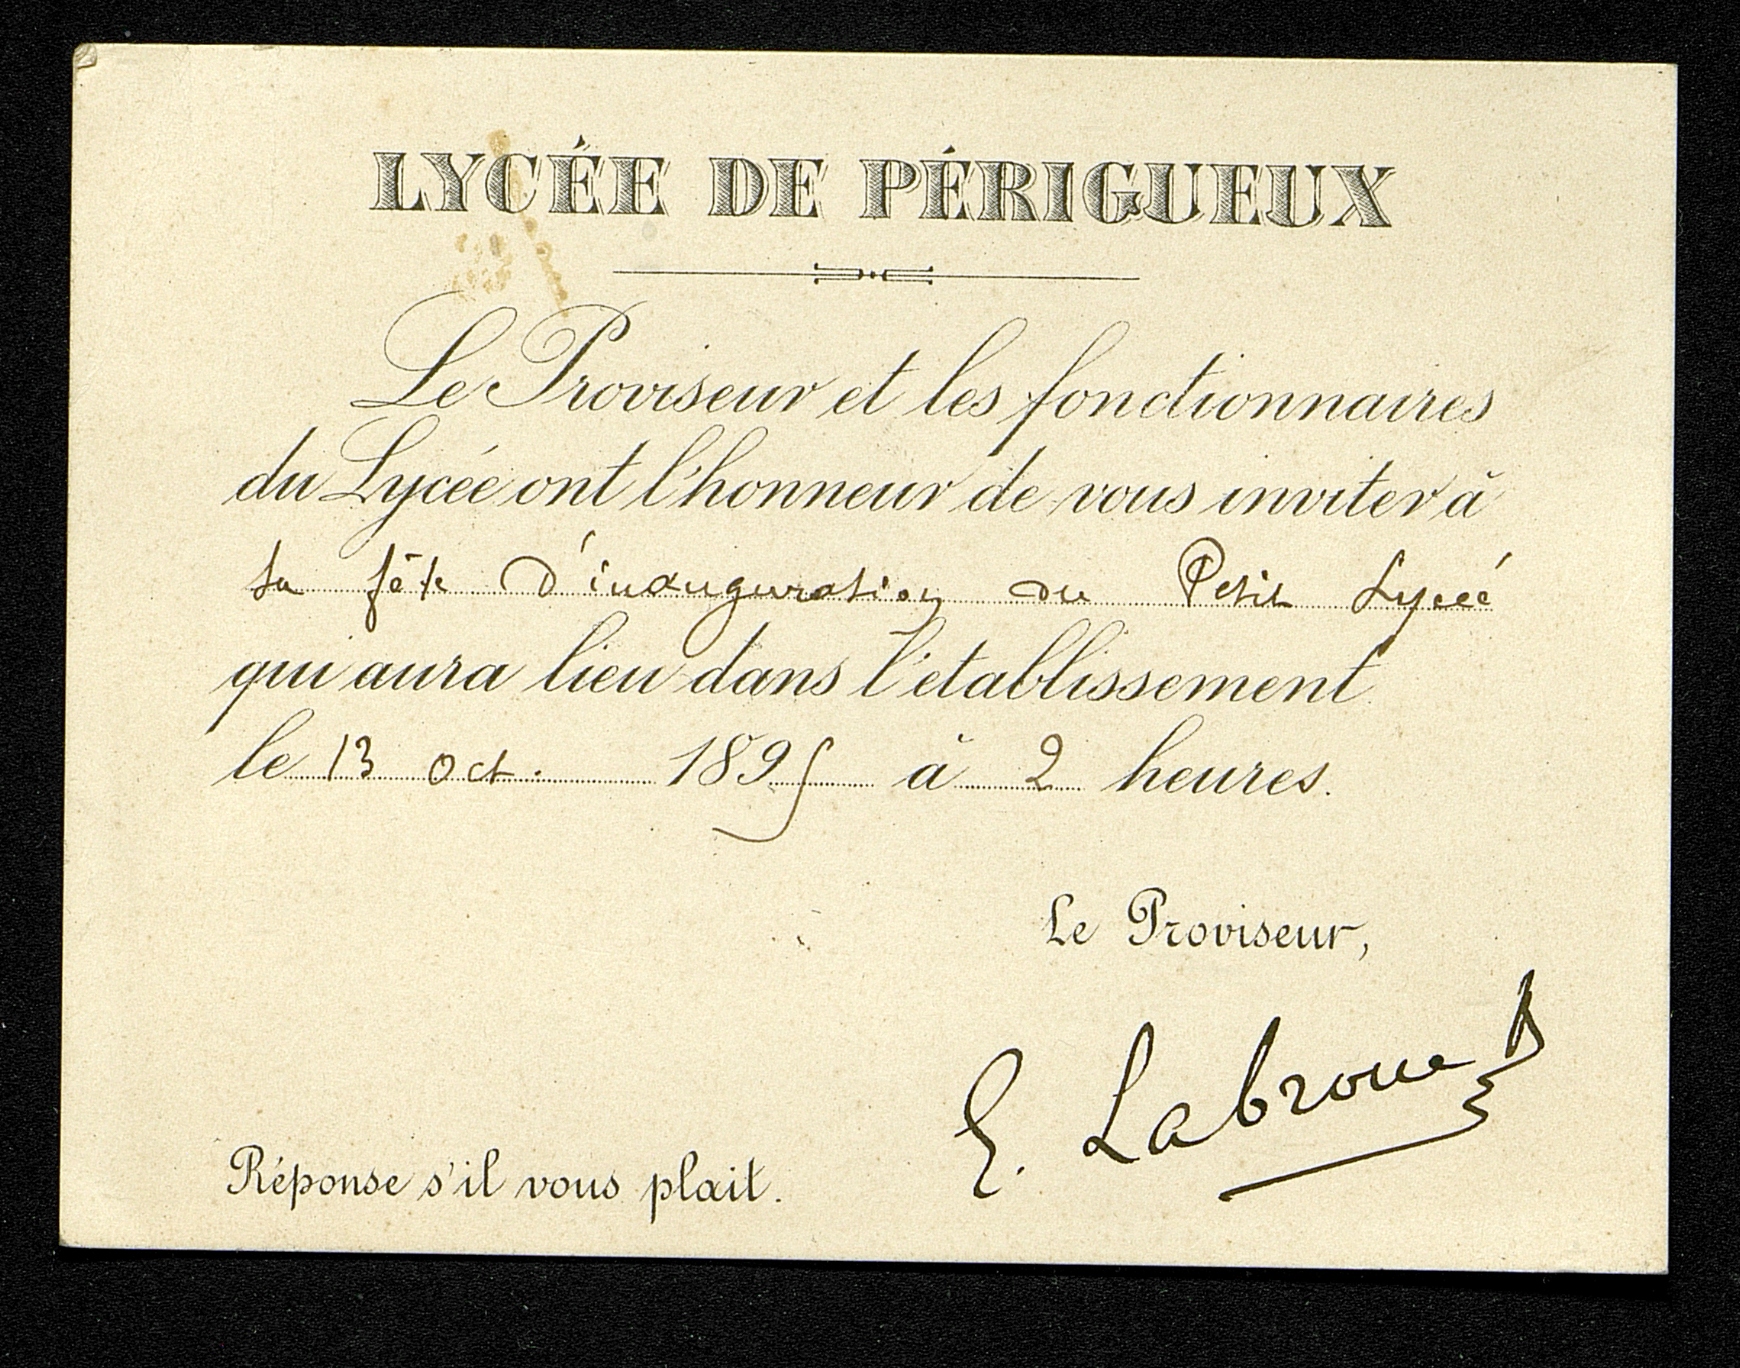 LYCÉE DE PÉRIGUEUX
Le Proviseur et les fonctionnaires
du Lycée ont l'honneur de vous inviter à
la fête d'inauguration du Petit Lycée
qui aura lieu dans l'établissement
le 13 oct. 1895 à 2 heures.
Le Proviseur,
E. Labroue
Réponse s'il vous plait.